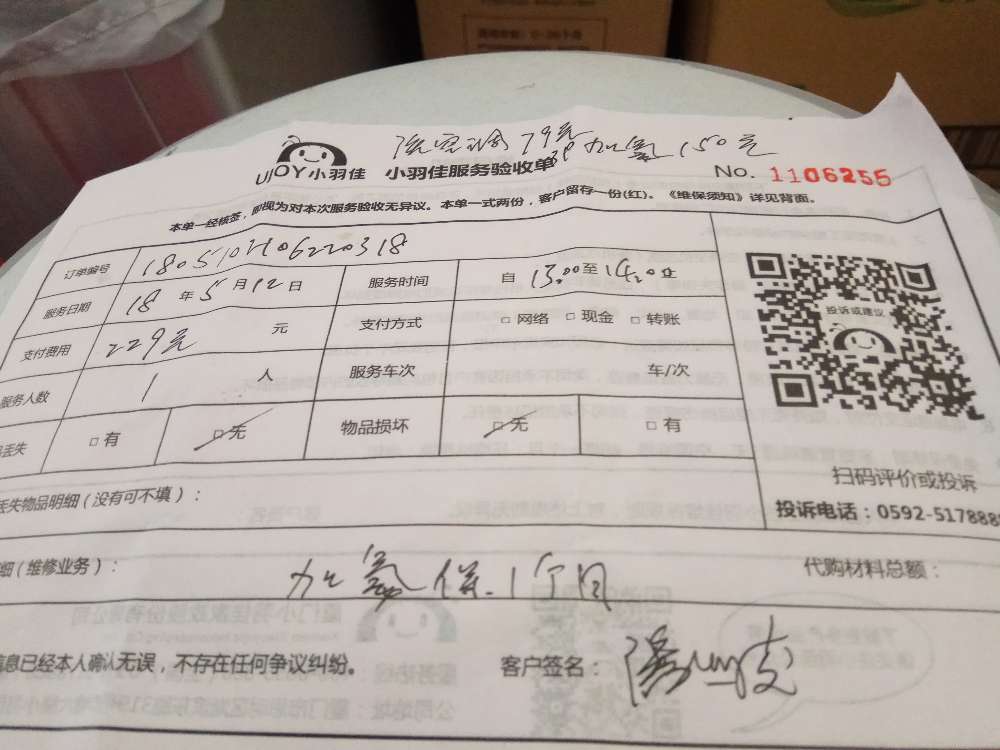 洗空调79元 加氟150元
UJOY小羽佳 小羽佳服务验收单 No. 1106255
本单一经核签，即视为对本次服务验收无异议。本单一式两份，客户留存一份(红)。《维保须知》详见背面。
订单编号
服务日期 18 年 5 月 12 日 服务时间 自 13.00 至
支付费用 229元 元 支付方式 □ 网络 □ 现金 □ 转账
服务人数 1 人 服务车次 车/次
丢失 □ 有 □ 无 物品损坏 □ 无 □ 有
投诉或建议
扫码评价或投诉
投诉电话：0592-5178889
丢失物品明细（没有可不填）：
细（维修业务）： 加氟保1个月 代购材料总额：
信息已经本人确认无误，不存在任何争议纠纷。 客户签名：